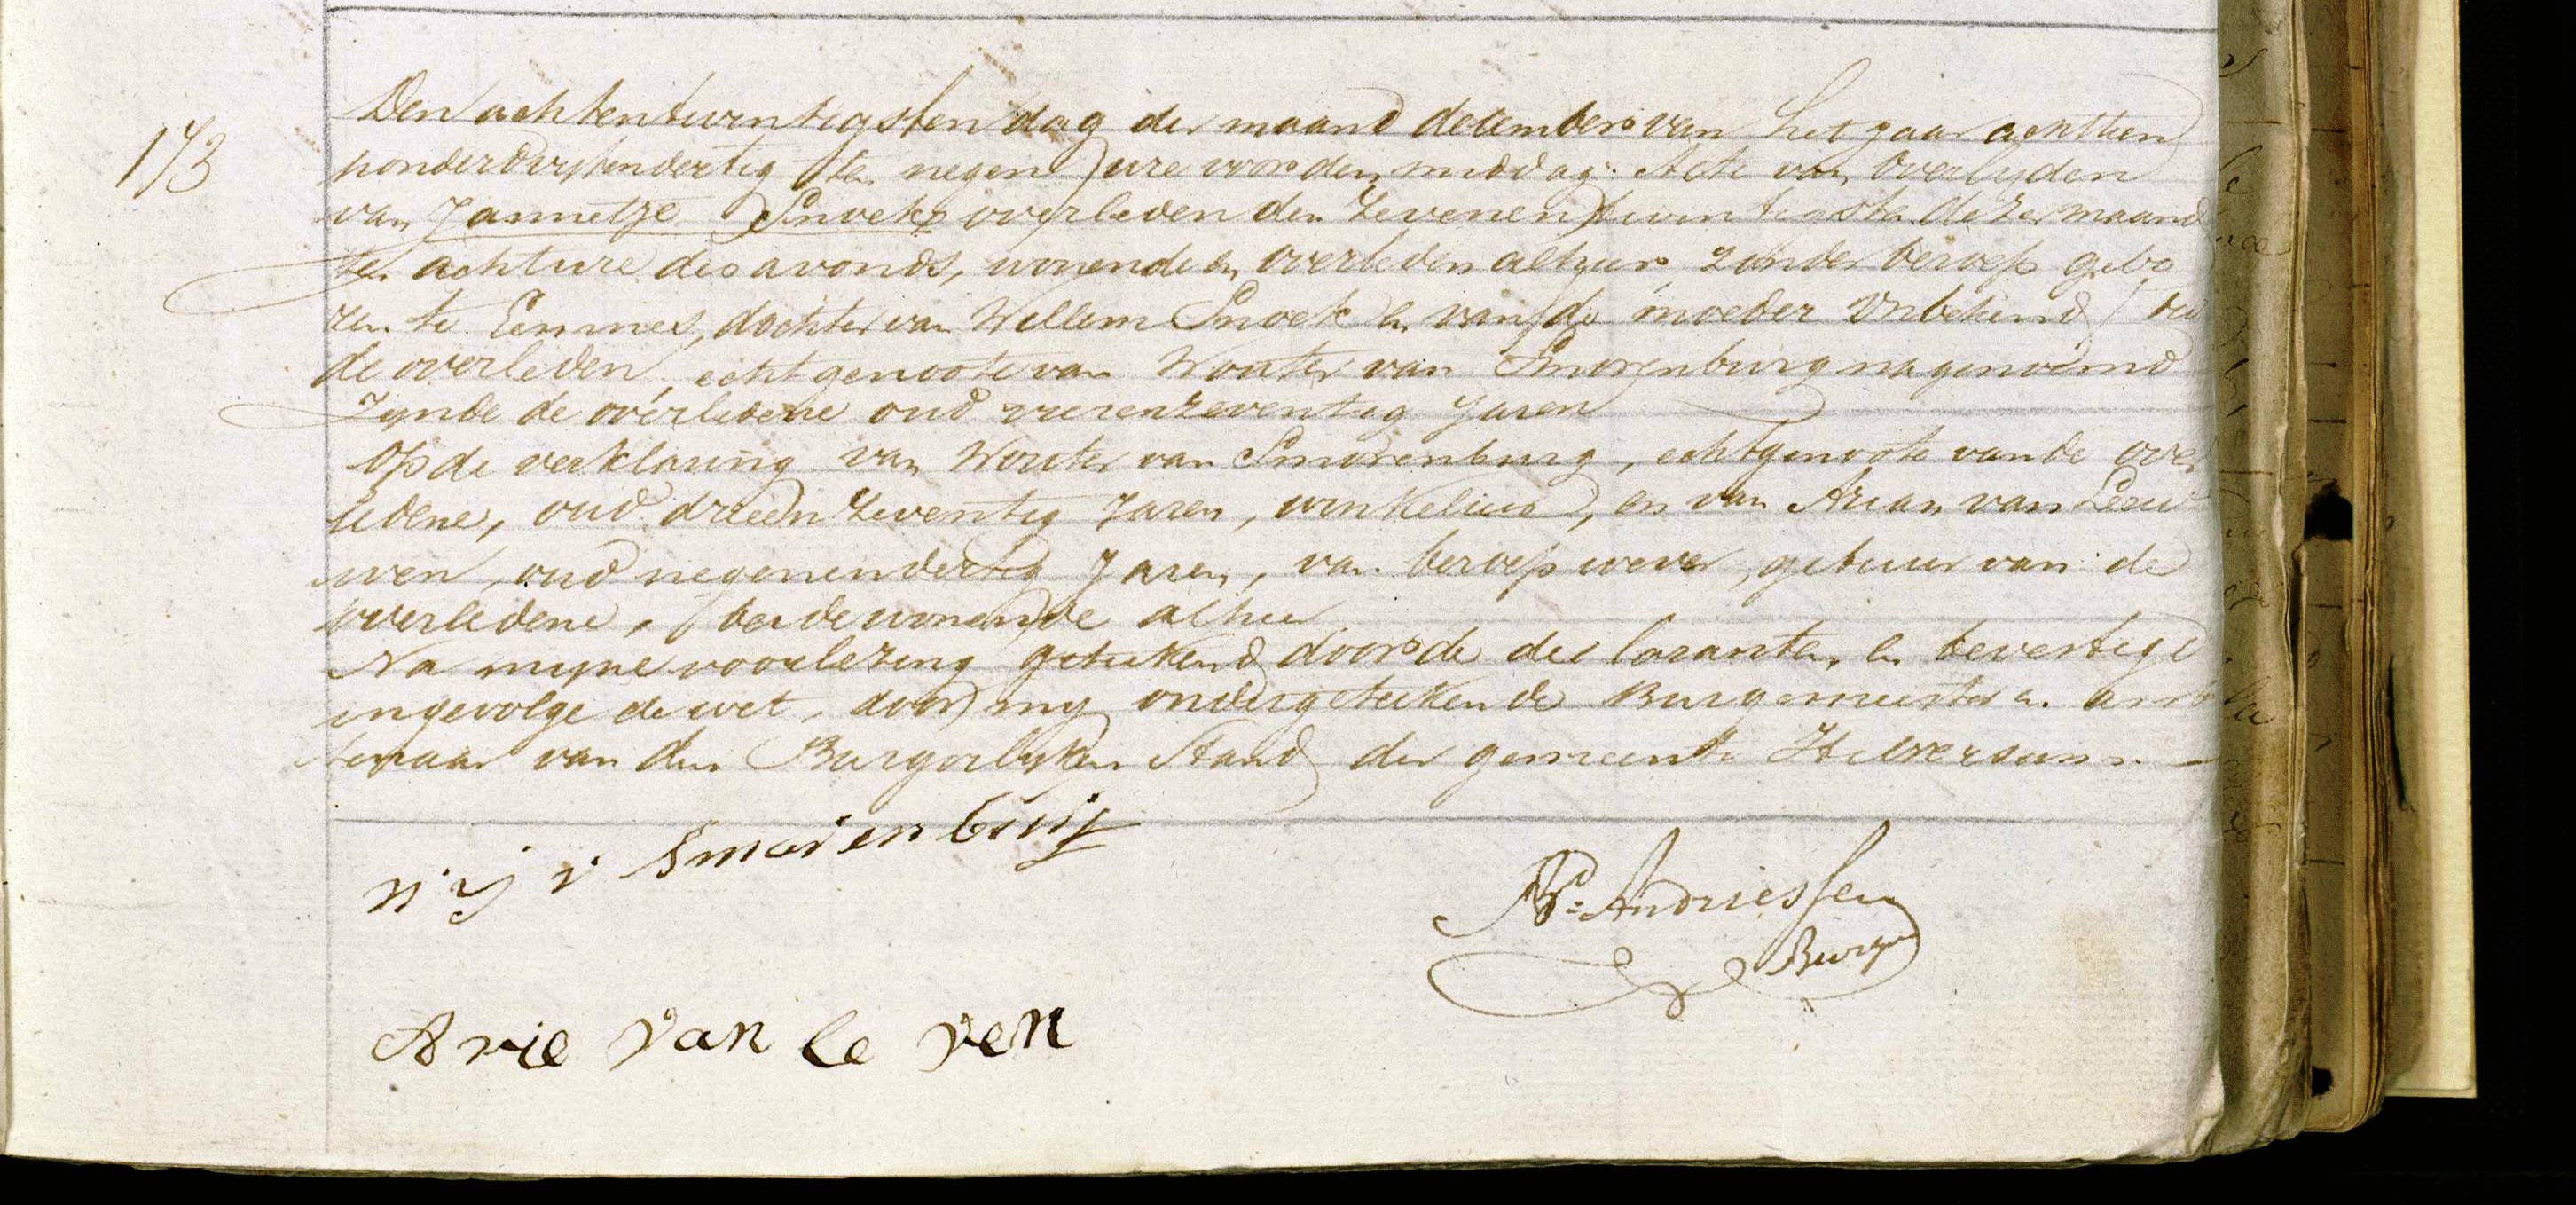 173
Den achtentwintigsten dag der maand december van het jaar achttien
honderdvijfendertig ten negen ure voor den middag. Acte van Overlyden
van Jannetje Snoek overleden den Zevenentwintigsten dezer maand
ten acht ure des avonds, wonende en overleden alhier, zonder beroep gebo
ren te Eemnes, dochter van Willem Snoek en van de moeder onbekend bei
de overleden, echtgenoote van Wouter van Smorenburg nagenoemd
Zynde de overledene oud vierenzeventig Jaren
Op de verklaring van Wouter van Smorenburg, echtgenoote van de over
ledene, oud drieenzeventig Jaren, winkelier, en van Arian van Leeu
wen, oud negenendertig Jaren, van beroep wever, gebuur van de
overledene, beide wonende alhier
Na myne voorlezing geteekend door de declaranten en bevestigd
ingevolge de wet, door my ondergeteekende Burgemeester en amb
tenaar van den Burgerlyken Stand der gemeente Hilversum
v Smorenburg
Andriessen
Burgr
Arie van le ven